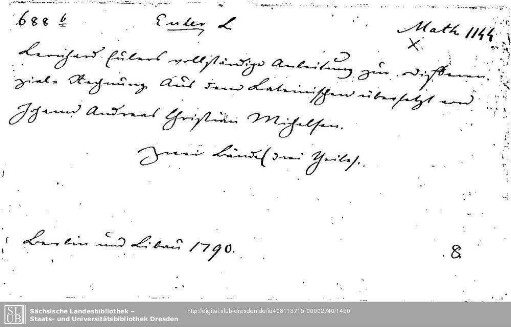 688 b Euler L Math 1144
Leonhard Eulers vollständige Anleitung zur Differen
zial Rechnung. Aus dem Lateinischen übersetzt von
Johann Andreas Christian Michelsen.
Zwei Bände (drei Theile).
Berlin und Libau 1790. 8
SLUB Sächsische Landesbibliothek –
Staats- und Universitätsbibliothek Dresden